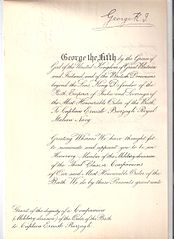 George R.I.
George the Fifth by the Grace of
God of the United Kingdom of Great Britain
and Ireland, and of the British Dominions
beyond the Seas King, Defender of the
Faith, Emperor of India and Sovereign of
the Most Honorable Order of the Bath,
To Captain Ernesto Burzagli Royal
Italian Navy
Greeting Whereas We have thought fit
to nominate and appoint you to be an
Honorary Member of the Military division
of the Third Class or Companions
of Our said Most Honorable Order of the
Bath We do by these Presents grant unto
Grant of the dignity of a Companion
Military division of the Order of the Bath
to Captain Ernesto Burzagli